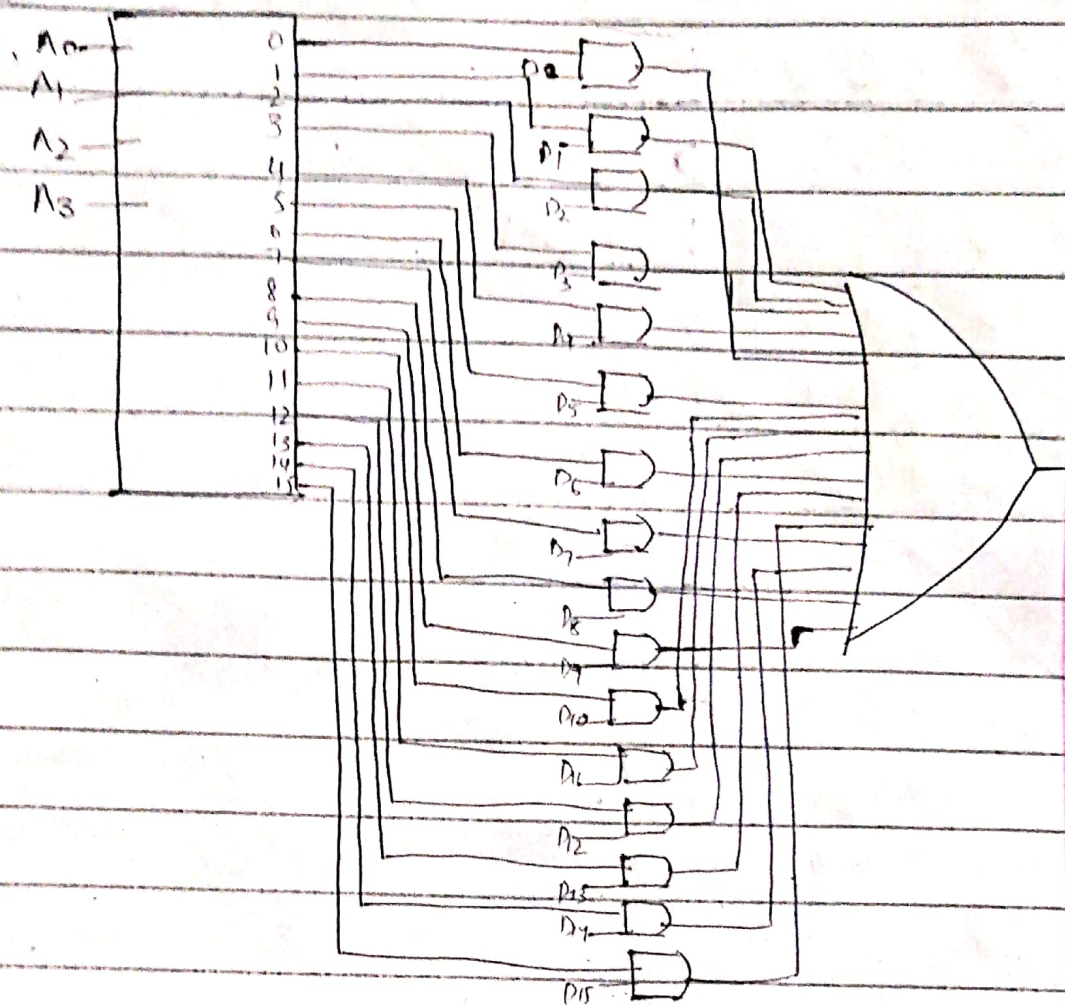 A0
A1
A2
A3
0
1
2
3
4
5
6
7
8
9
10
11
12
13
14
15
D0
D1
D2
D3
D4
D5
D6
D7
D8
D9
D10
D11
D12
D13
D14
D15